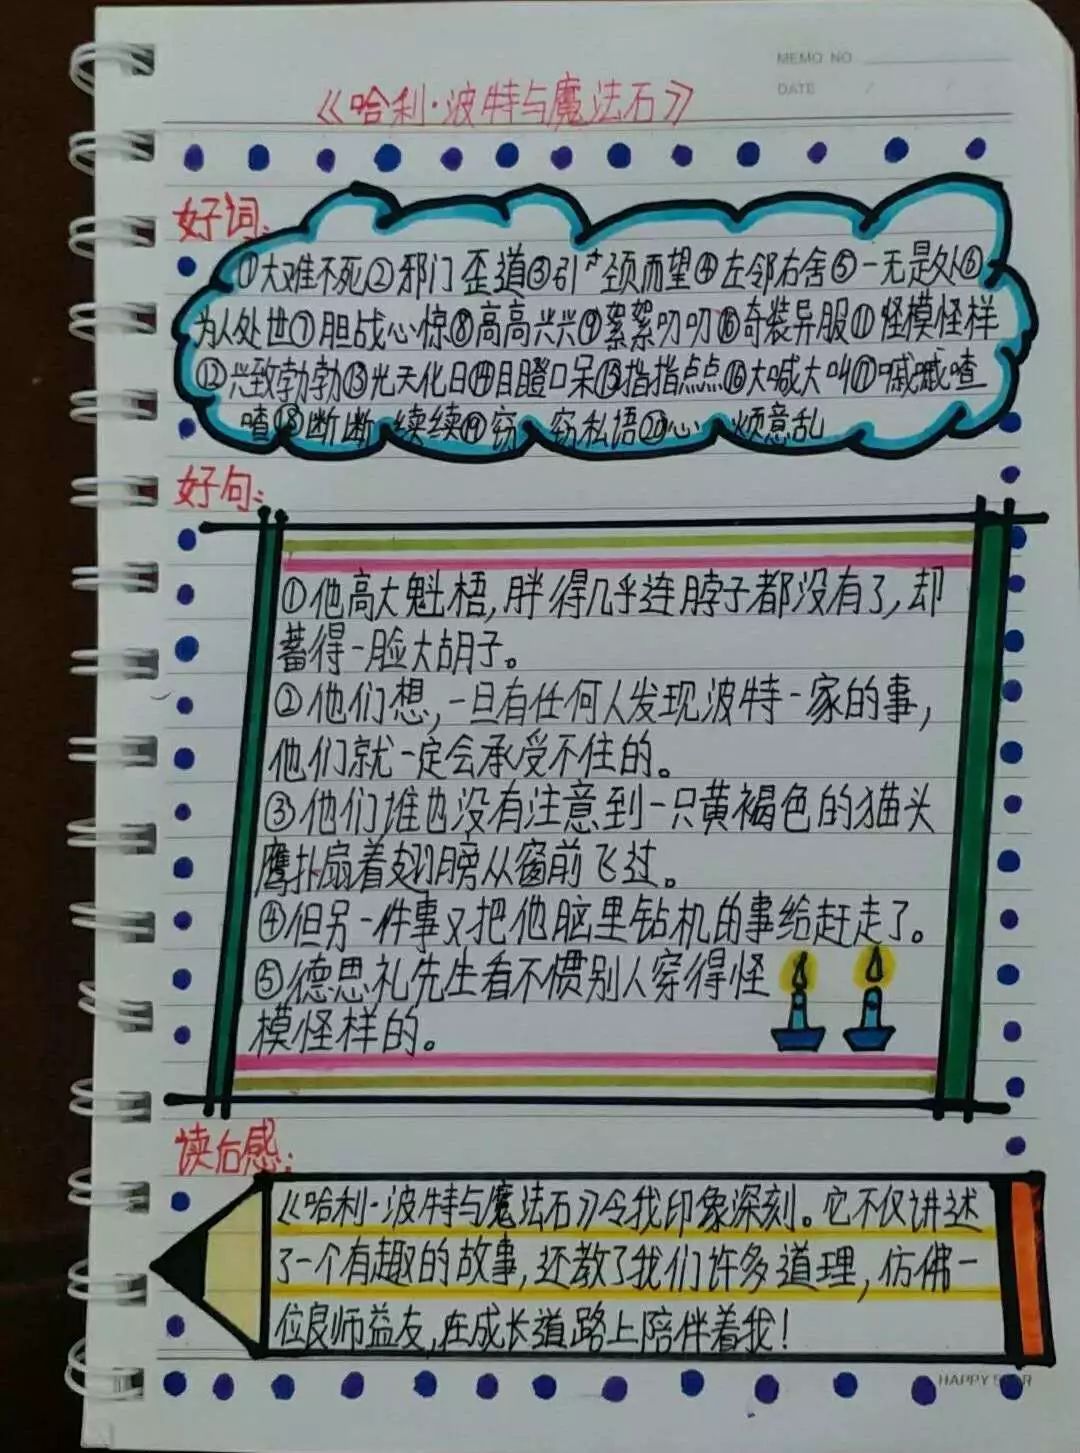 MEMO NO
DATE / /
《哈利·波特与魔法石》
好词:
①大难不死②邪门歪道③引颈而望④左邻右舍⑤一无是处⑥
为人处世⑦胆战心惊⑧高高兴兴⑨絮絮叨叨⑩奇装异服⑪怪模怪样
⑫兴致勃勃⑬光天化日⑭目瞪口呆⑮指指点点⑯大喊大叫⑰嘁嘁喳
喳⑱断断续续⑲窃窃私语⑳心烦意乱
好句:
①他高大魁梧,胖得几乎连脖子都没有了,却
蓄得一脸大胡子。
②他们想,一旦有任何人发现波特一家的事,
他们就一定会承受不住的。
③他们谁也没有注意到一只黄褐色的猫头
鹰扑扇着翅膀从窗前飞过。
④但另一件事又把他脑里钻机的事给赶走了。
⑤德思礼先生看不惯别人穿得怪
模怪样的。
读后感:
《哈利·波特与魔法石》令我印象深刻。它不仅讲述
了一个有趣的故事,还教了我们许多道理,仿佛一
位良师益友,在成长道路上陪伴着我!
HAPPY